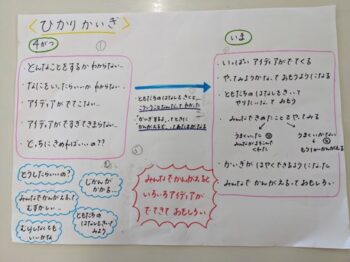 ひかりかいぎ
4がつ
①
いま
どんなことをするかわからない…
なにをいったらいいかわからない
アイディアがでてこない…
アイディアがですぎてきまらない…
どっちにきめればいいの??
ともだちのはなしをきくと
こういうことなんだってわかった
いっぱいアイディアがでてくる
やってみようかなっておもうようになる
ともだちのはなしをきいて
やりたいなっておもう
みんなできめたことをやってみる
かいぎがはやくできるようになった
みんなでかんがえるっておもしろい
どうしたらいいの?
じかんが
かかる
みんなでかんがえるって
むずかしい
むりしなくても
いいかな
ともだちの
はなしをきいて
みよう
みんなでかんがえると
いろいろアイディアが
でてきておもしろい